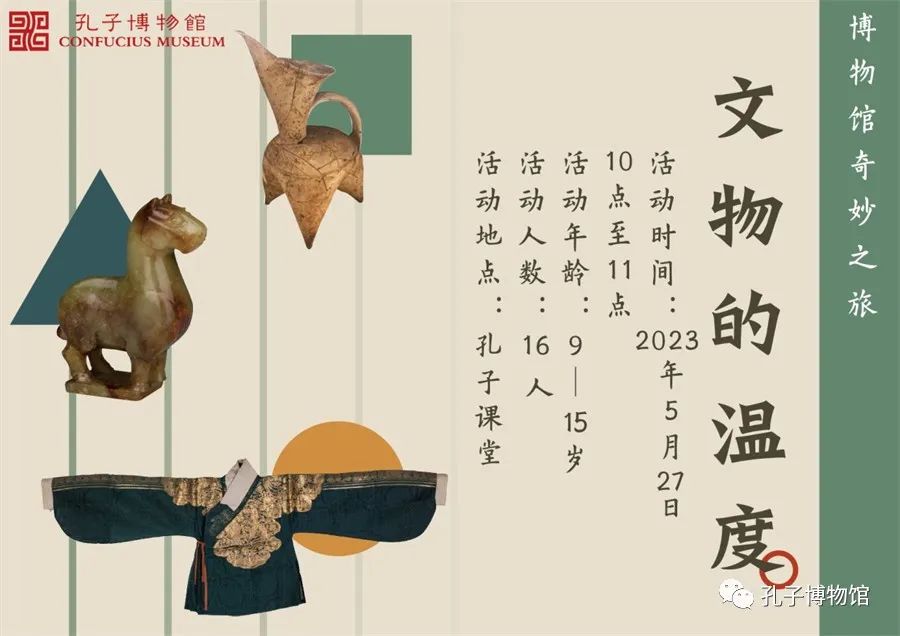 孔子博物館
CONFUCIUS MUSEUM
博物馆奇妙之旅
文物的温度
活动时间：2023年5月27日
10点至11点
活动年龄：9—15岁
活动人数：16人
活动地点：孔子课堂
孔子博物馆